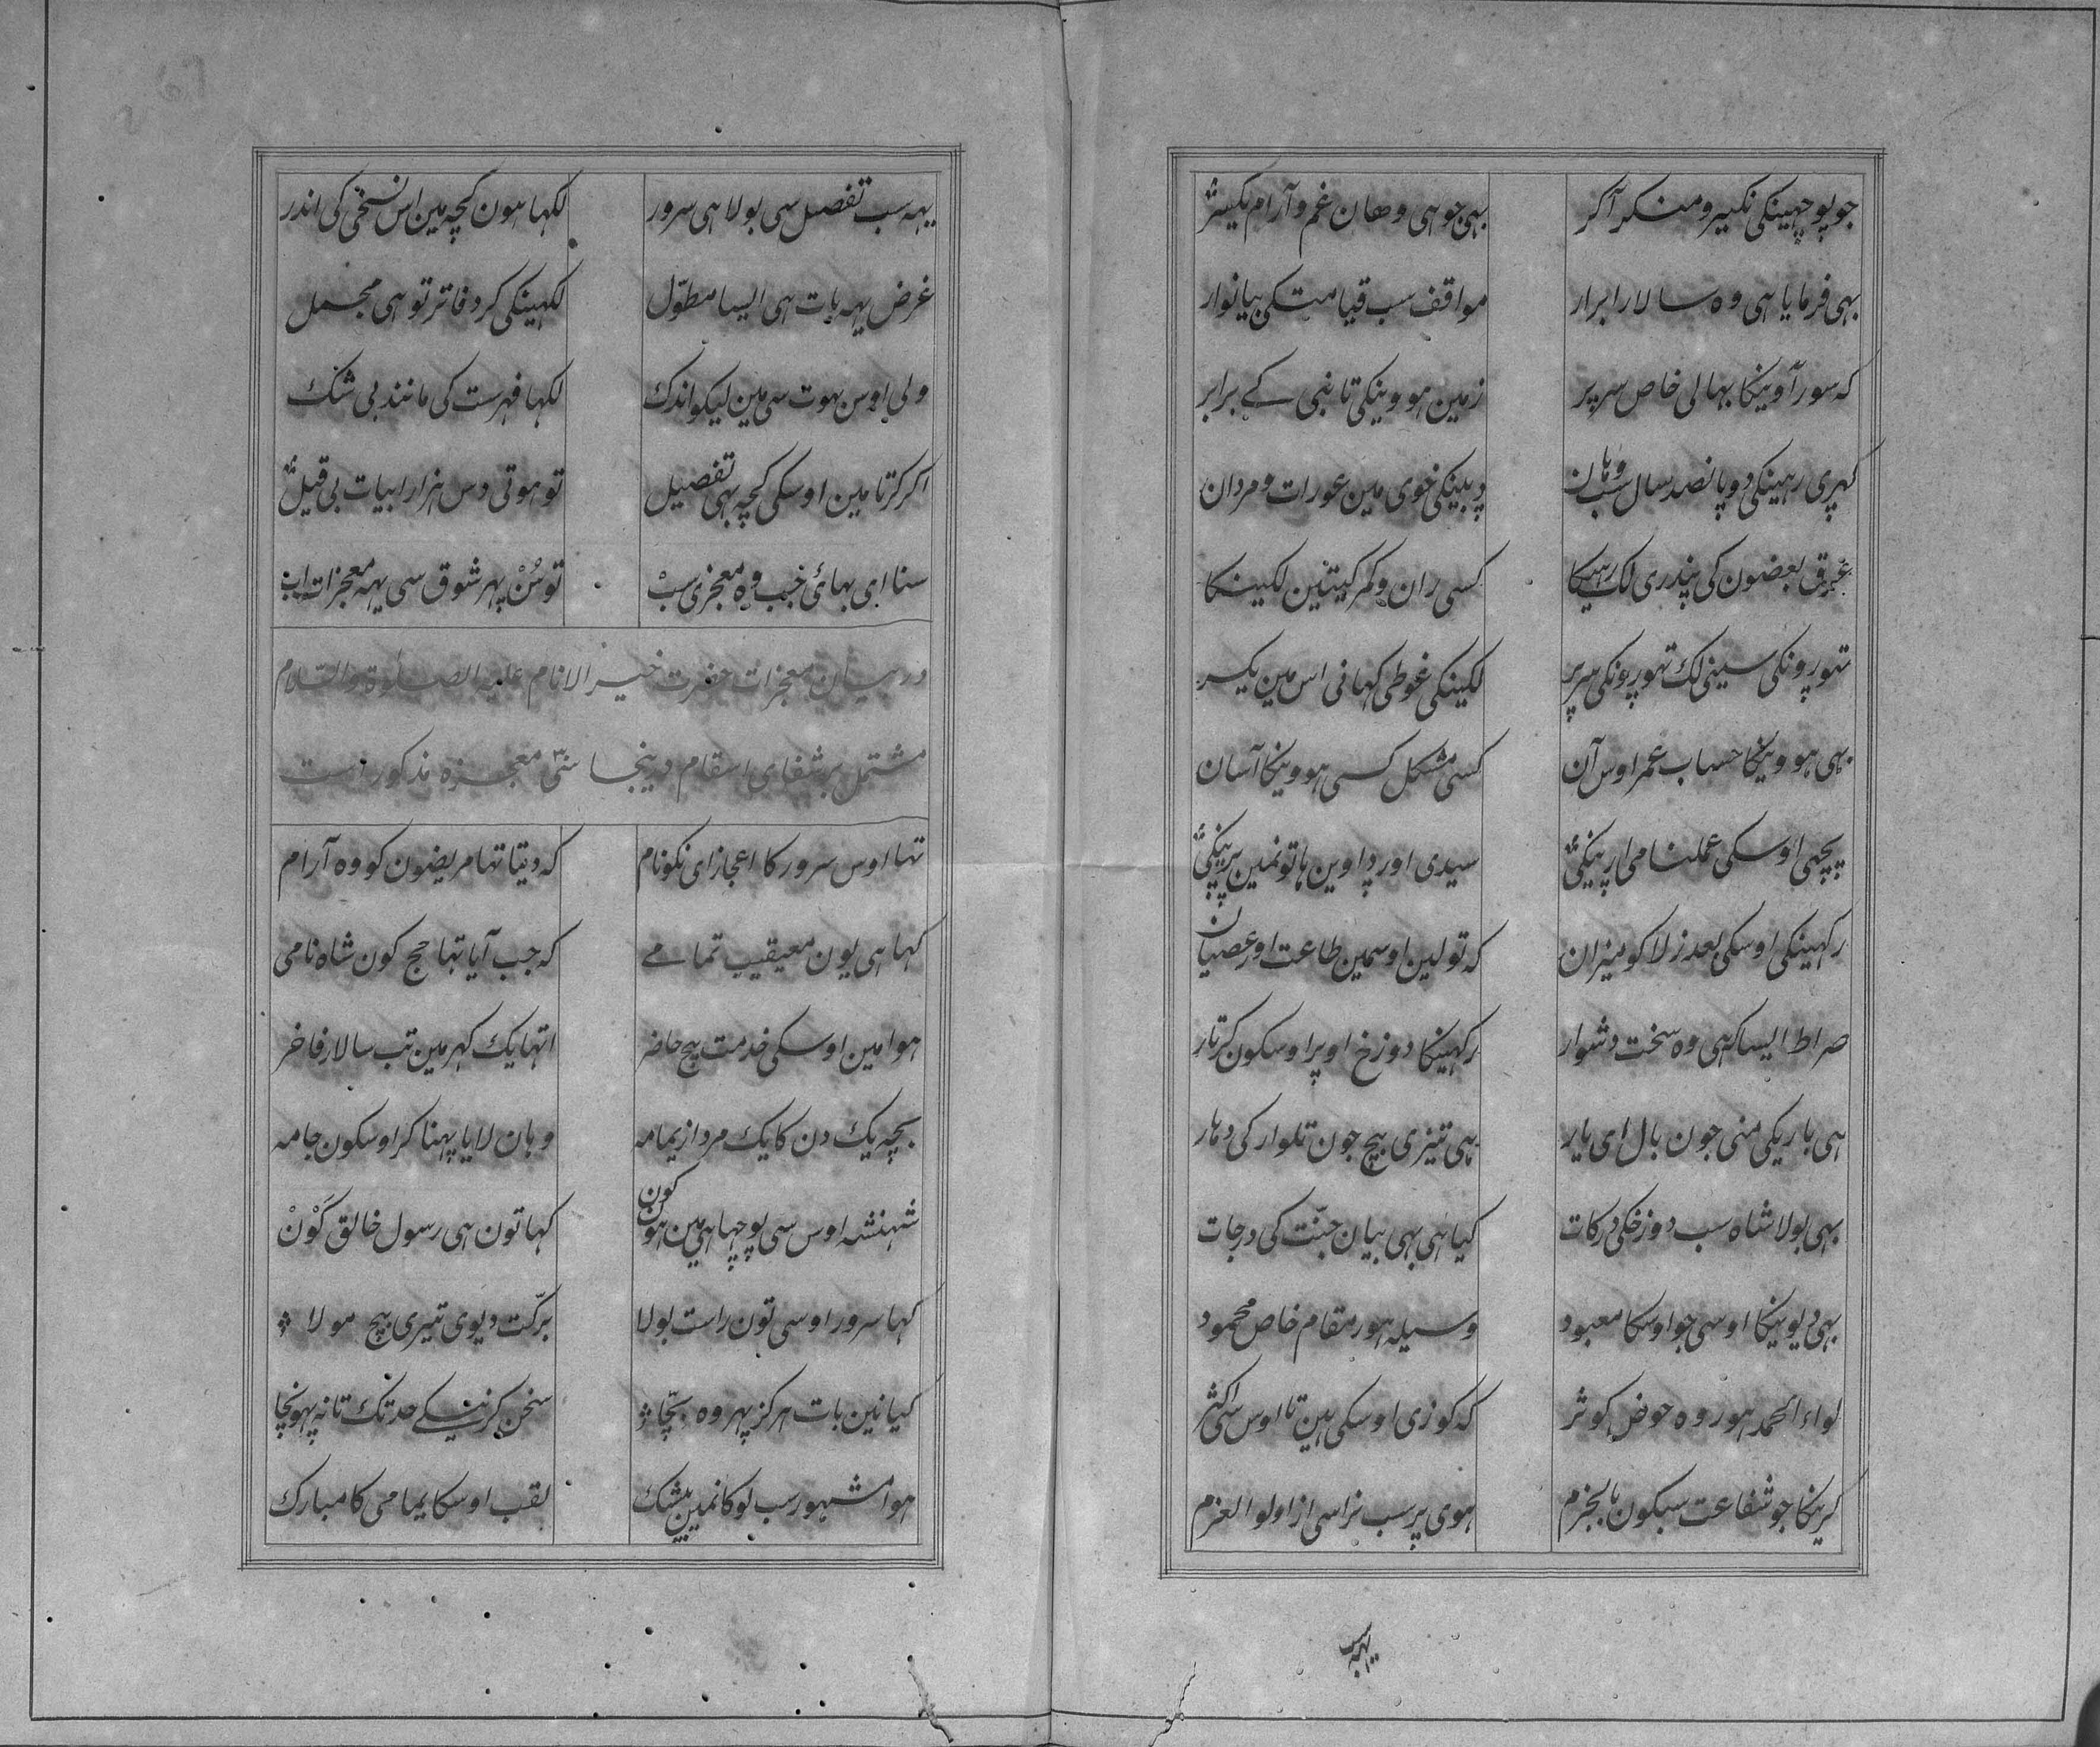 جو پوچھینکی نکیر و منکر آکر بہی جو ہی وھان غم و آرام یکسر
بہی فرمایا ہی وہ سالار ابرار مواقف سب قیامتکی بیانوار
که سور آوینکا بہالی خاص سر پر زمین ہووینکی تانبی کے برابر
کہری رہینکی دو پانصد سال سب وہان دبلینکی خوی مین عورات و مردان
عرق بعضون کی پندری لک رہیکا کسی ران و کمر کیتین لکینکا
تہورونکی سینی لک تہورونکی سر پر لکینکی غوطی کہانی اس مین یکسر
بہی ہووینکا حساب عمر اوس آن کسی مشکل کسی ہووینکا آسان
پیچہی اوسکی عملنامی ارینکی سیدی اور داوین ہاتونمین پرینکی
رکہینکی اوسکی بعد از لا کو میزان که تولین اوسمین طاعت اور عصیان
صراط ایسا کہی وہ سخت دشوار رکہینکا دوزخ اوپر اوسکون کرتار
ہی باریکی منی جون بال ای یار بہی تیزی بیچ جون تلوار کی دہار
بہی بولا شاہ سب دوزخکی درکات کیا ہی بہی بیان جنّت کی درجات
بہی دیوینکا اوسی جو اوسکا معبود وسیلہ ہور مقام خاص محمود
لواء الحمد ہور وہ حوض کوثر که کوزی اوسکی ہین تا اوس سی اکثر
کرینکا جو شفاعت سبکون بالجزم ہوی پر سب نراسی از اولو العزم
یہہ سب
یہہ سب تفصل سی بولا ہی سرور لکہا ہون کچہ مین اس نسخی کی اندر
غرض یہہ بات ہی ایسا مطوّل لکہینکی کر دفاتر تو ہی مجمل
ولی اوس بہوت سی مین لیکو اندک لکہا فہرست کی مانند بی شک
اکر کرتا مین اوسکی کچہ بہی تفصیل تو ہوتی دس ہزار ابیات بی قیل
سنا ای بہائی جب وہ معجزی سبْ تو سُنْ پہر شوق سی یہہ معجزات اب
در بیان معجزات حضرت خیر الانام علیه الصلوة والسّلام
مشتمل بر شفای اسقام درینجا سی معجزه مذکور است
تہا اوس سرور کا اعجاز ای نکونام که دیتا تہا مریضون کو وہ آرام
کہا ہی یون معیقیب تمامے که جب آیا تہا حج کون شاہ نامی
ہوا مین اوسکی خدمت بیچ حاضر اتہا یک کہر مین تب سالار فاخر
بچہ یک دن کا یک مرد از یمامه وہان لایا پہنا کر اوسکون جامه
شہنشه اوس سی پوچہا ہی مین ہون کون کہا تون ہی رسول خالق کَوْنْ
کہا سرور اوسی تون راست بولا برکّت دیوی تیری بیچ مولا
کیا نین بات ہرکز پہر وہ بچّا سخن کرنیکے حد تک تا نه پہونچا
ہوا مشہور سب لوکانمین بیشک لقب اوسکا یمامی کا مبارک